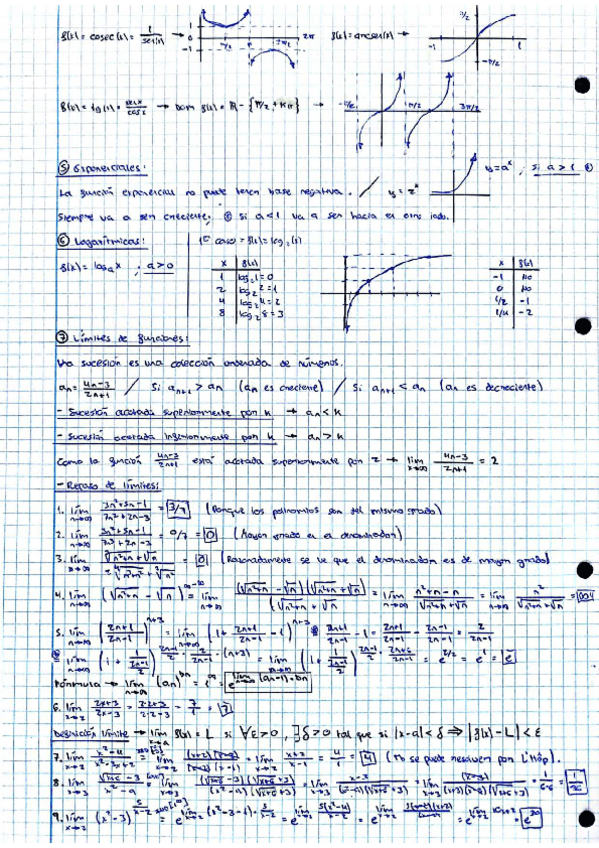 f(x) = cosec(x) = 1/sen(x) → f(x) = arcsen(x) →
f(x) = tg(x) = senx/cosx → Dom f(x) = ℝ - {π/2 + kπ} →
⑤ Exponenciales:
La función exponencial no puede tener base negativa. / y = 2^x
y = a^x ; si a > 1
Siempre va a ser creciente; si a<1 va a ser hacia el otro lado.
⑥ Logarítmicas:
1er caso → f(x) = log₂(x)
f(x) = log_a x ; a>0
x f(x)
1 log₂ 1 = 0
2 log₂ 2 = 1
4 log₂ 4 = 2
8 log₂ 8 = 3
x f(x)
-1 No
0 No
1/2 -1
1/4 -2
⑦ Límites de funciones:
Una sucesión es una colección ordenada de números.
an = 4n-3/2n+1 / Si an+1 > an (an es creciente) / Si an+1 < an (an es decreciente)
- Sucesión acotada superiormente por k → an < k
- Sucesión acotada inferiormente por k → an > k
Como la función 4n-3/2n+1 está acotada superiormente por 2 → lim 4n-3/2n+1 = 2
- Repaso de límites:
1. lim n→∞ 3n²+5n-1/7n²+2n-3 = 3/7 (Porque los polinomios son del mismo grado)
2. lim n→∞ = 0/7 = 0 (Mayor grado es el denominador)
3. lim = 0 (Razonadamente se ve que el denominador es de mayor grado)
4. lim n→∞ (√n²+n - √n) = lim n→∞ (√n²+n - √n)(√n²+n + √n)/(√n²+n + √n) = lim n→∞ n²+n-n/√n²+n+√n = lim n→∞ n²/√n²+n+√n =
5. lim n→∞ (2n+1/2n-1)^n+3 = lim n→∞ (1 + 2n+1/2n-1 - 1)^n+3 2n+1/2n-1 - 1 = 2n+1/2n-1 - 2n-1/2n-1 = 2/2n-1
= e^2/2 = e^1 = e
Fórmula → lim n→∞ (an)^bn = 1^∞ = e^lim n→∞ (an-1)·bn
6. lim x→2 2x+3/2x-3 = 2·2+3/2·2-3 = 7/1 = 7
Definición límite → lim x→a f(x) = L si ∀ε>0, ∃δ>0 tal que si |x-a|<δ ⇒ |f(x)-L|<ε
7. lim x→2 x²-4/x²-3x+2 = lim x→2 (x+2)(x-2)/(x-2)(x-1) = lim x→2 x+2/x-1 = 4/1 = 4 (Tb se puede resolver por L'Hôp).
8. lim x→3 √x+6 -3/x²-9 = lim x→3 (√x+6 -3)(√x+6 +3)/(x²-9)(√x+6 +3) = lim x→3 x-3/(x²-9)(√x+6 +3) = lim x→3 (x-3)/(x+3)(x-3)(√x+6 +3) = 1/6·6 = 1/36
9. lim x→2 (x²-3)^5/x-2 = e^lim x→2 (x²-3-1)·5/x-2 = e^lim x→2 5(x²-4)/x-2 = e^lim x→2 5(x-2)(x+2)/x-2 = = e^20